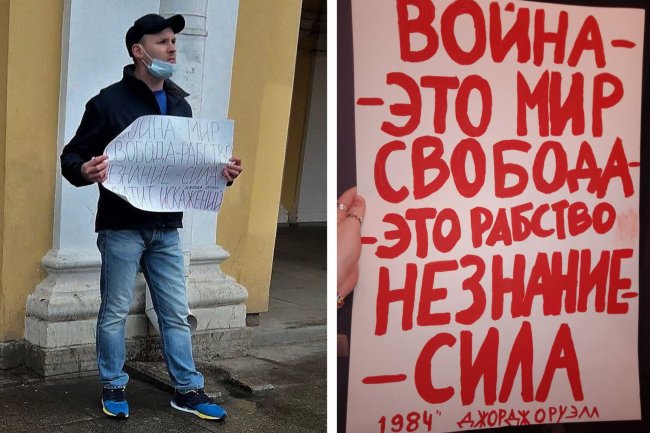 ВОЙНА МИР
СВОБОДА-РАБСТВО
ЗНАНИЕ СИЛА
ДЖОРДЖ ОРУЭЛЛ
ВОЙНА-
-ЭТО МИР
СВОБОДА-
-ЭТО РАБСТВО
НЕЗНАНИЕ-
-СИЛА
1984" ДЖОРДЖ ОРУЭЛЛ